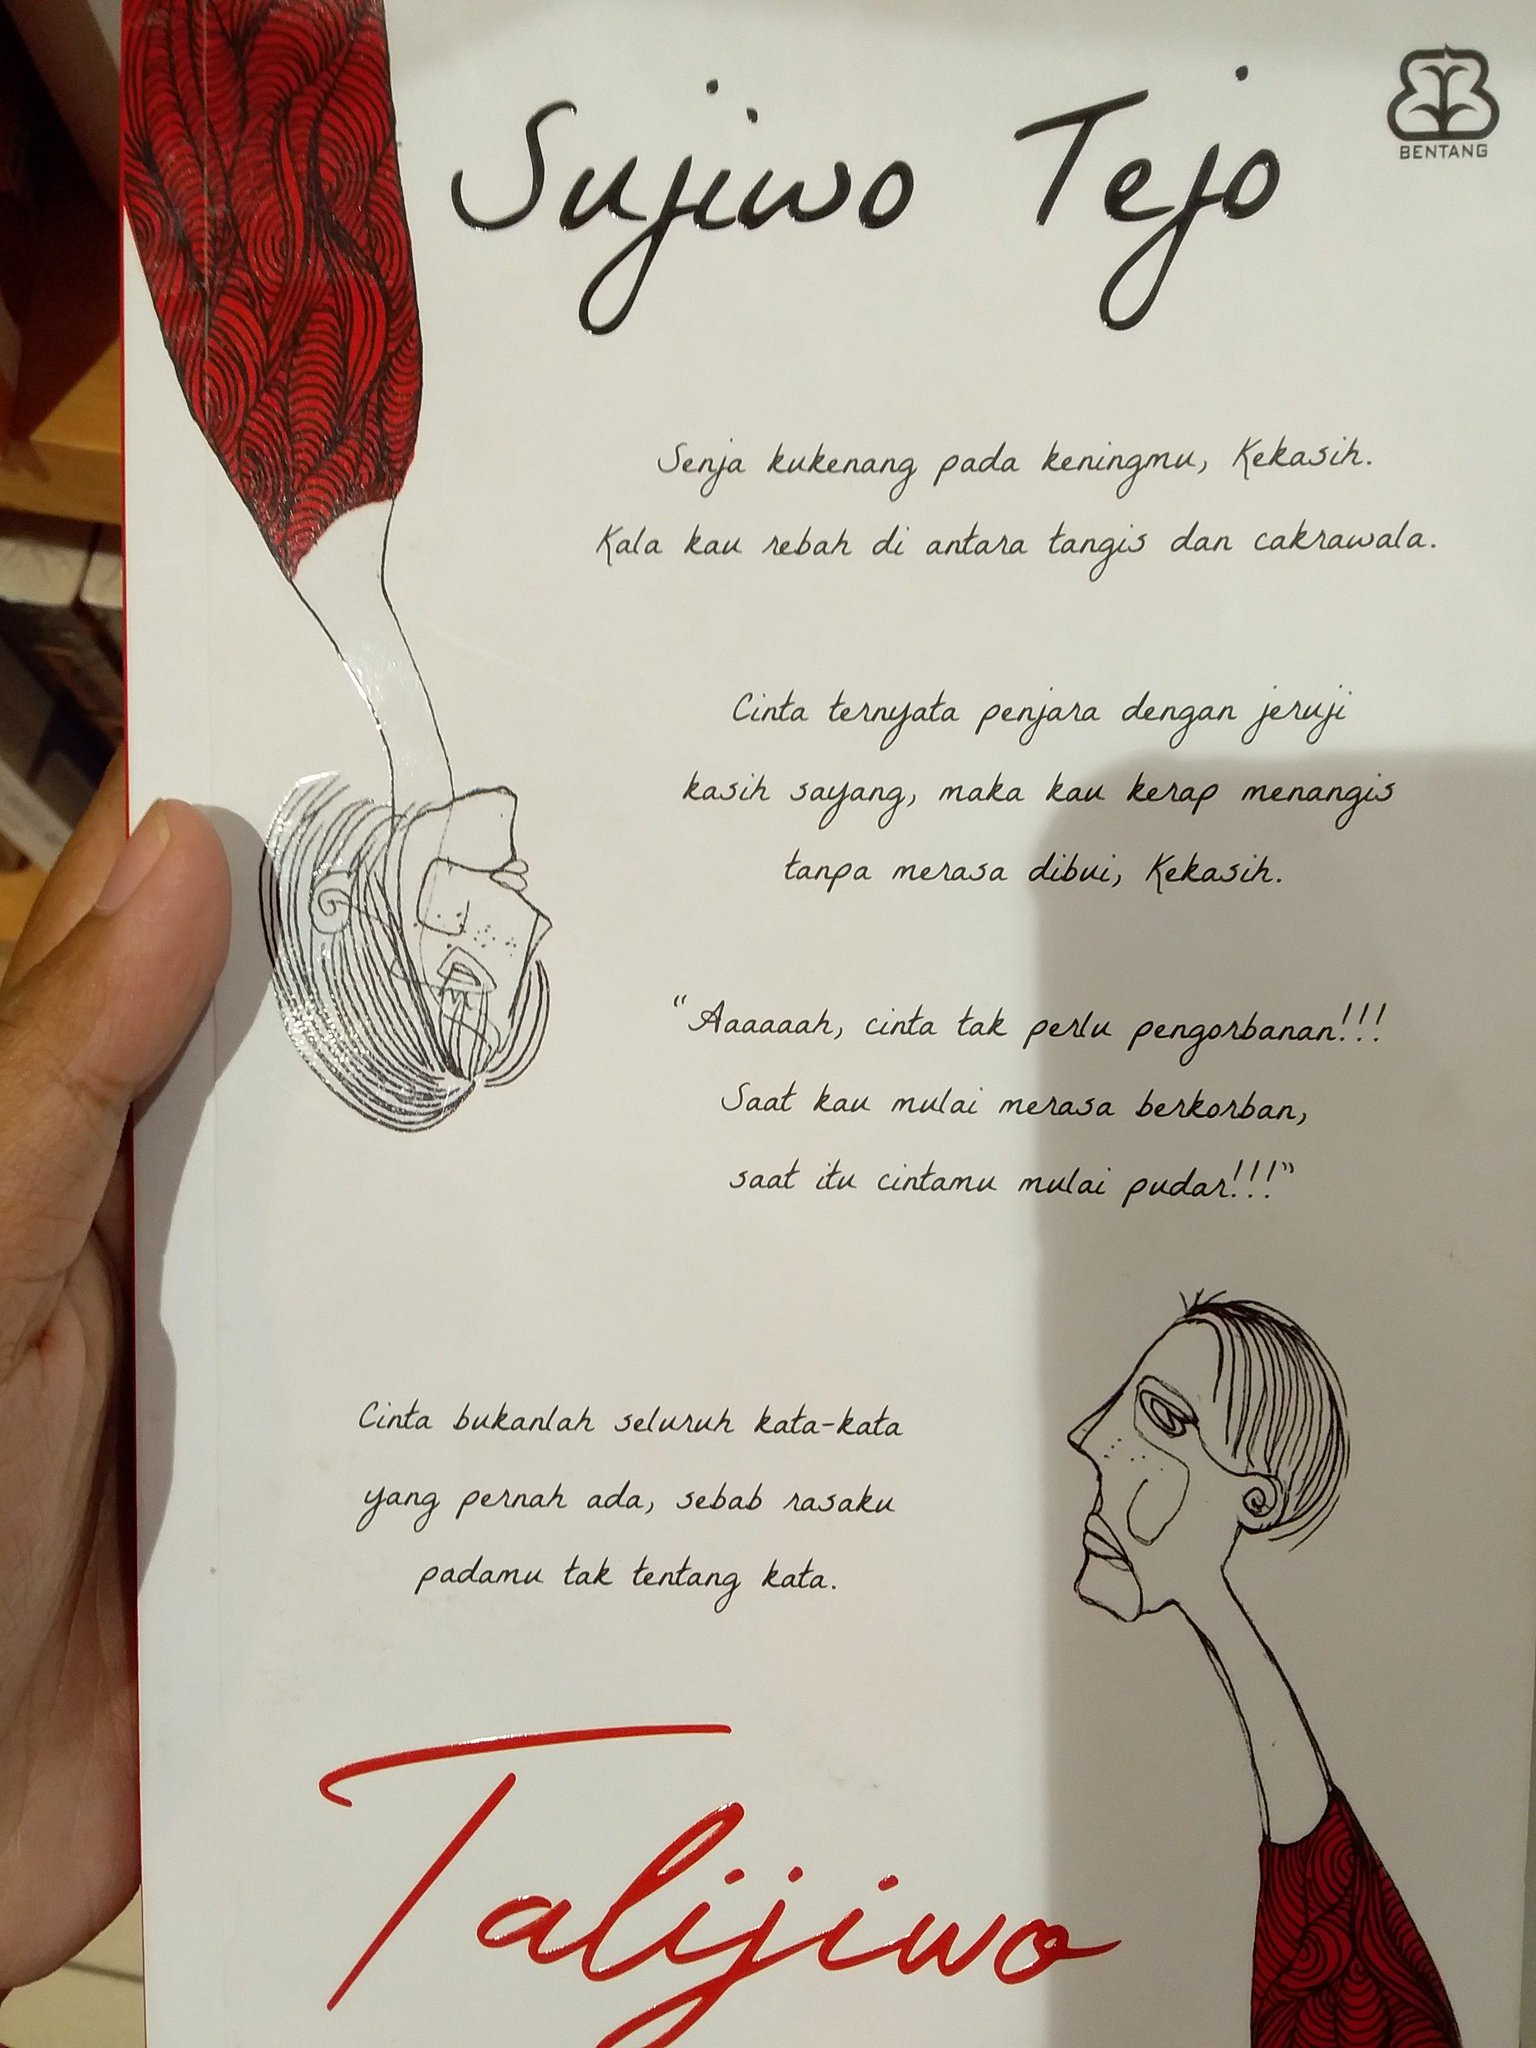 Sujiwo Tejo
BENTANG
Senja kukenang pada keningmu, Kekasih.
Kala kau rebah di antara tangis dan cakrawala.
Cinta ternyata penjara dengan jeruji
kasih sayang, maka kau kerap menangis
tanpa merasa dibui, Kekasih.
"Aaaaaah, cinta tak perlu pengorbanan!!!
Saat kau mulai merasa berkorban,
saat itu cintamu mulai pudar!!!"
Cinta bukanlah seluruh kata-kata
yang pernah ada, sebab rasaku
padamu tak tentang kata.
Talijiwo